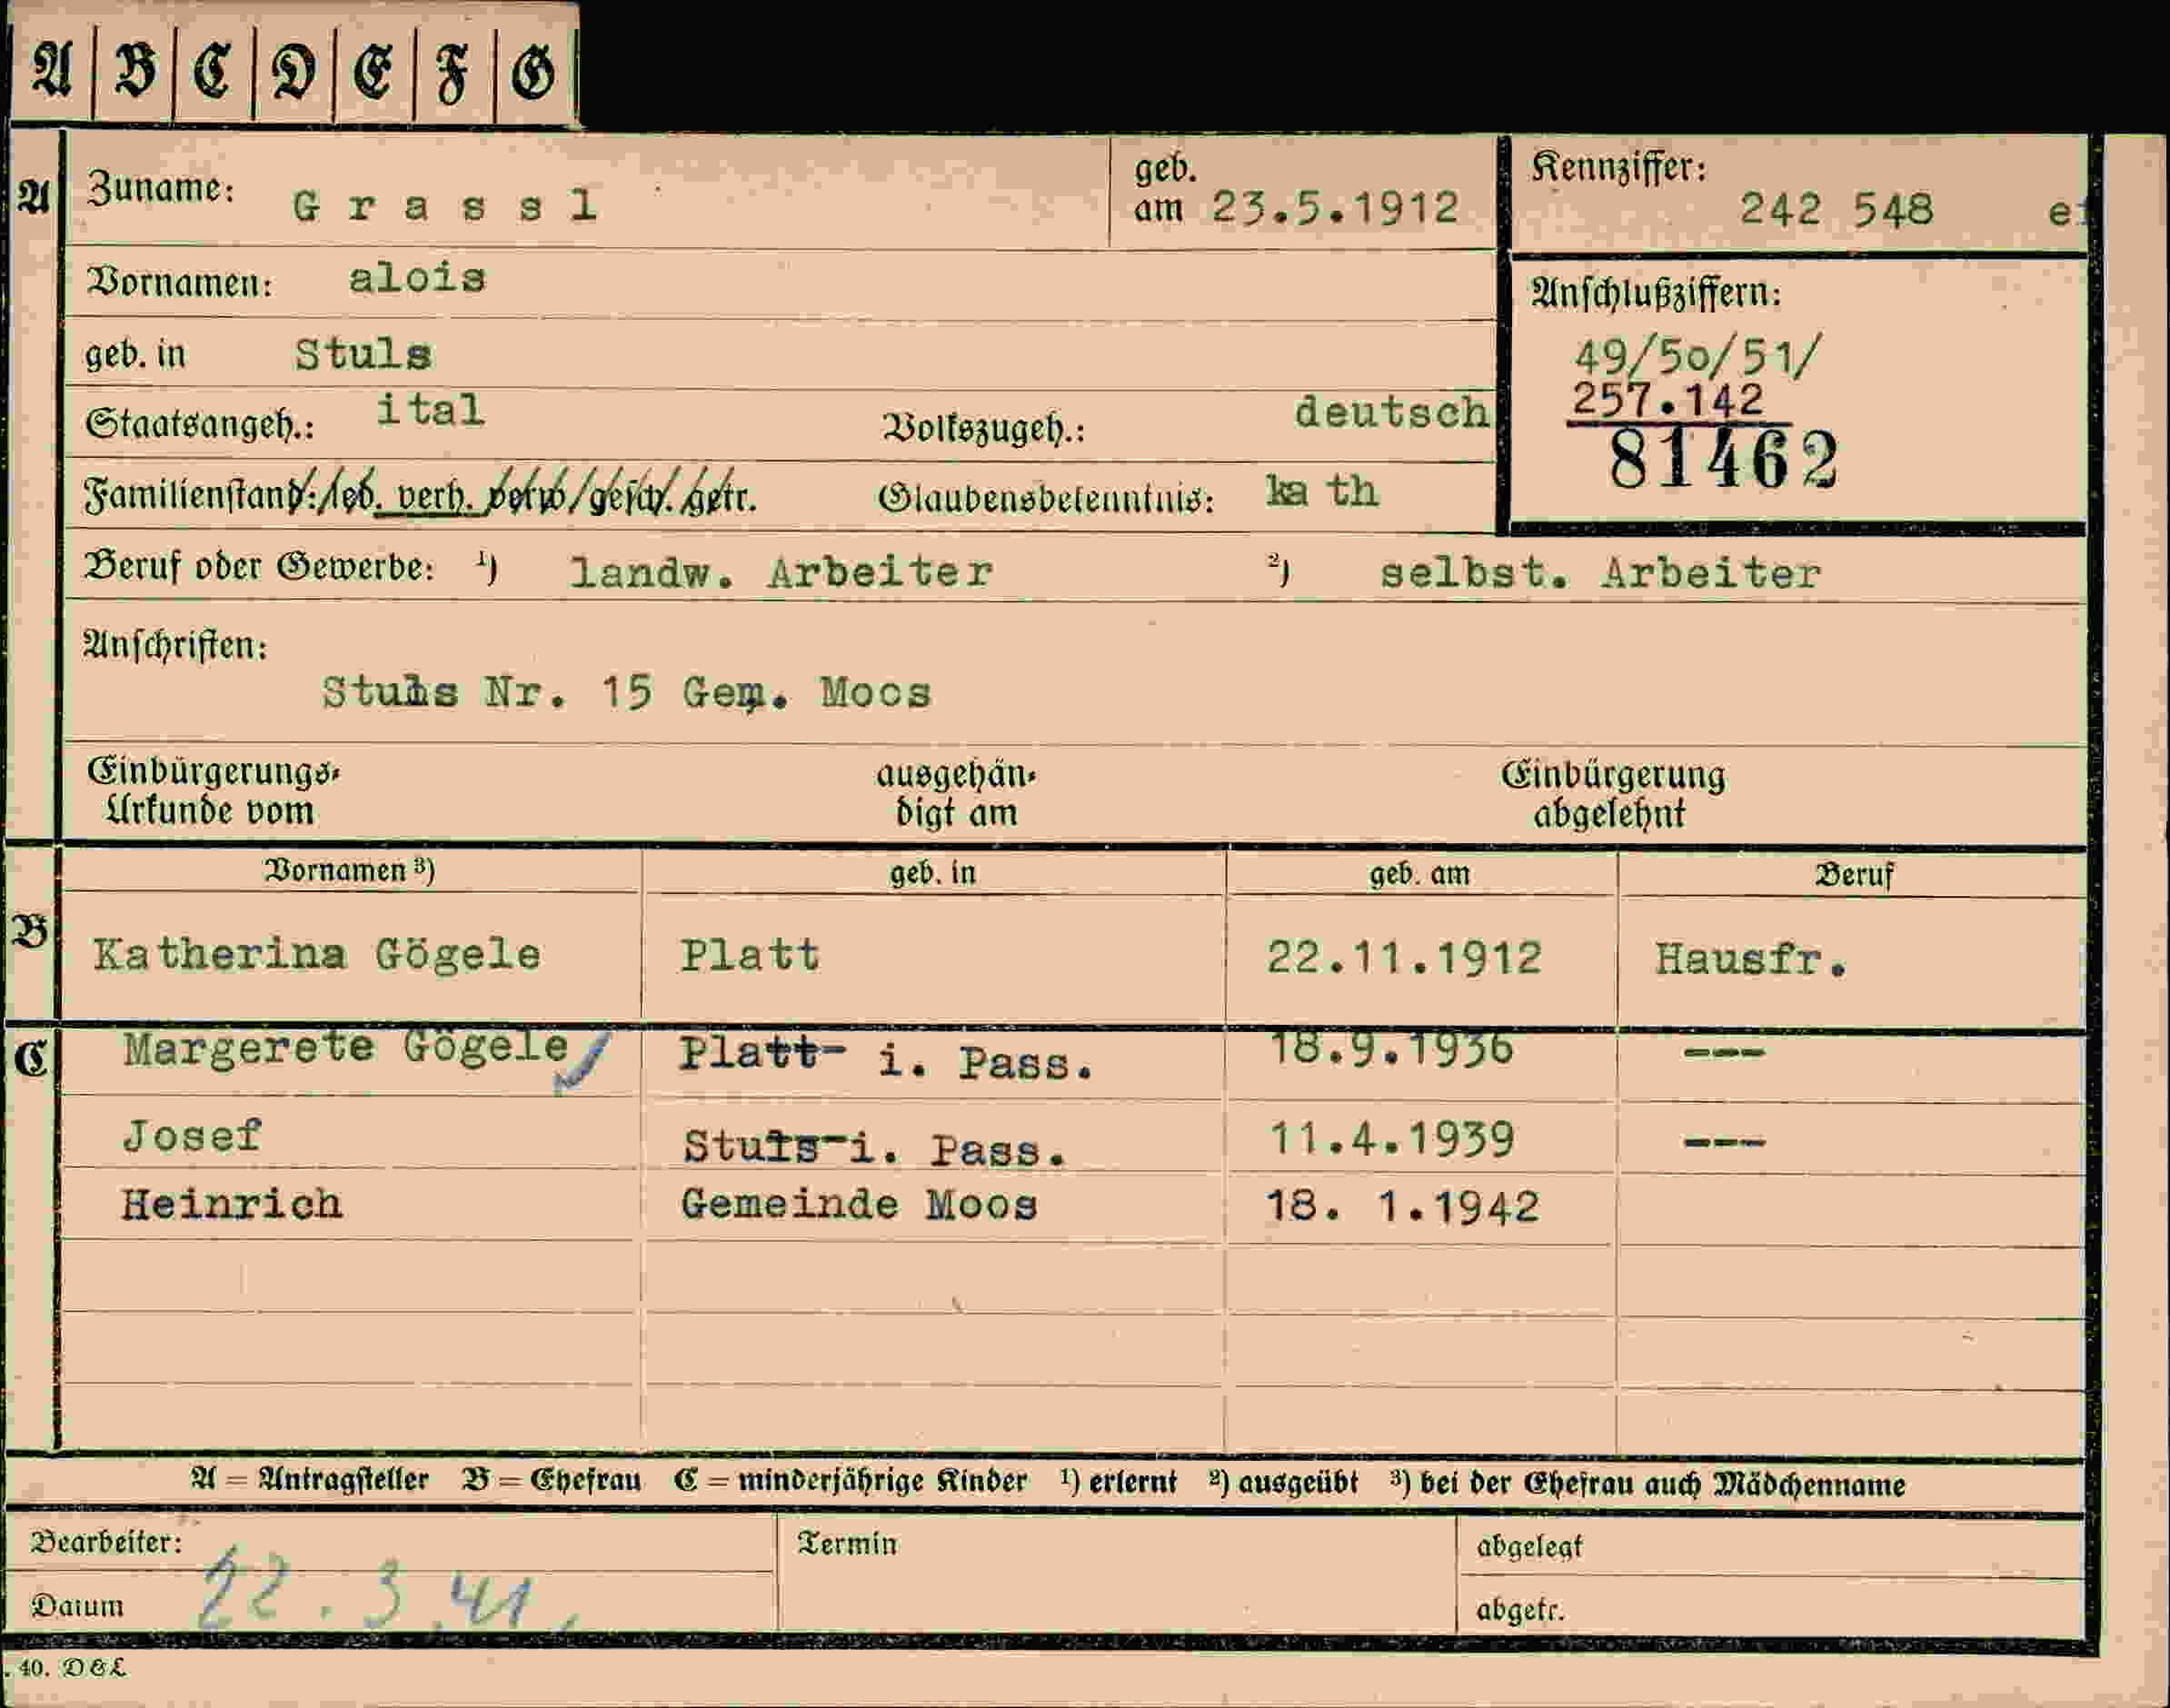 A B C D E F G
A Zuname: G r a s s l geb. am 23.5.1912 Kennziffer: 242 548
Vornamen: alois Anschlußziffern:
geb. in Stuls 49/5o/51/
Staatsangeh.: ital Volkszugeh.: deutsch 257.142
81462
Familienstand: led. verh. verw/gesch. getr. Glaubensbekenntnis: ka th
Beruf oder Gewerbe: 1) landw. Arbeiter 2) selbst. Arbeiter
Anschriften:
Stuls Nr. 15 Gem. Moos
Einbürgerungs- ausgehän- Einbürgerung
Urkunde vom digt am abgelehnt
Vornamen 3) geb. in geb. am Beruf
B Katherina Gögele Platt 22.11.1912 Hausfr.
C Margerete Gögele Platt- i. Pass. 18.9.1936 ---
Josef Stuls-i. Pass. 11.4.1939 ---
Heinrich Gemeinde Moos 18. 1.1942
A = Antragsteller B = Ehefrau C = minderjährige Kinder 1) erlernt 2) ausgeübt 3) bei der Ehefrau auch Mädchenname
Bearbeiter: Termin abgelegt
Datum 22.3.41. abgetr.
. 40. D&L